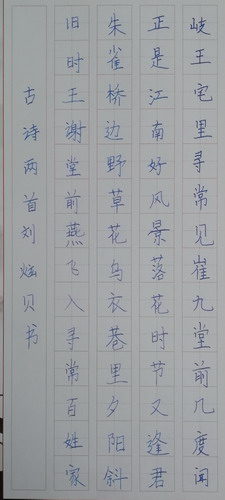 岐王宅里寻常见崔九堂前几度闻
正是江南好风景落花时节又逢君
朱雀桥边野草花乌衣巷里夕阳斜
旧时王谢堂前燕飞入寻常百姓家
古诗两首刘炫贝书